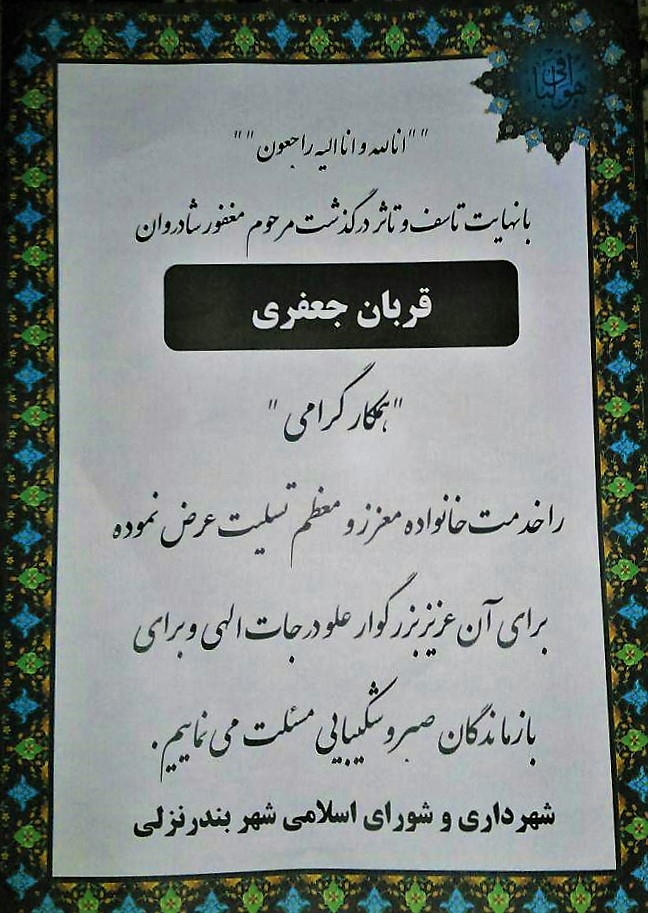 هو الباقی
""انالله و انا الیه راجعون""
بانهایت تاسف و تاثر درگذشت مرحوم مغفور شادروان
قربان جعفری
"همکار گرامی"
را خدمت خانواده معزز و معظم تسلیت عرض نموده
برای آن عزیز بزرگوار علو درجات الهی و برای
بازماندگان صبر و شکیبایی مسئلت می نماییم.
شهرداری و شورای اسلامی شهر بندرنزلی